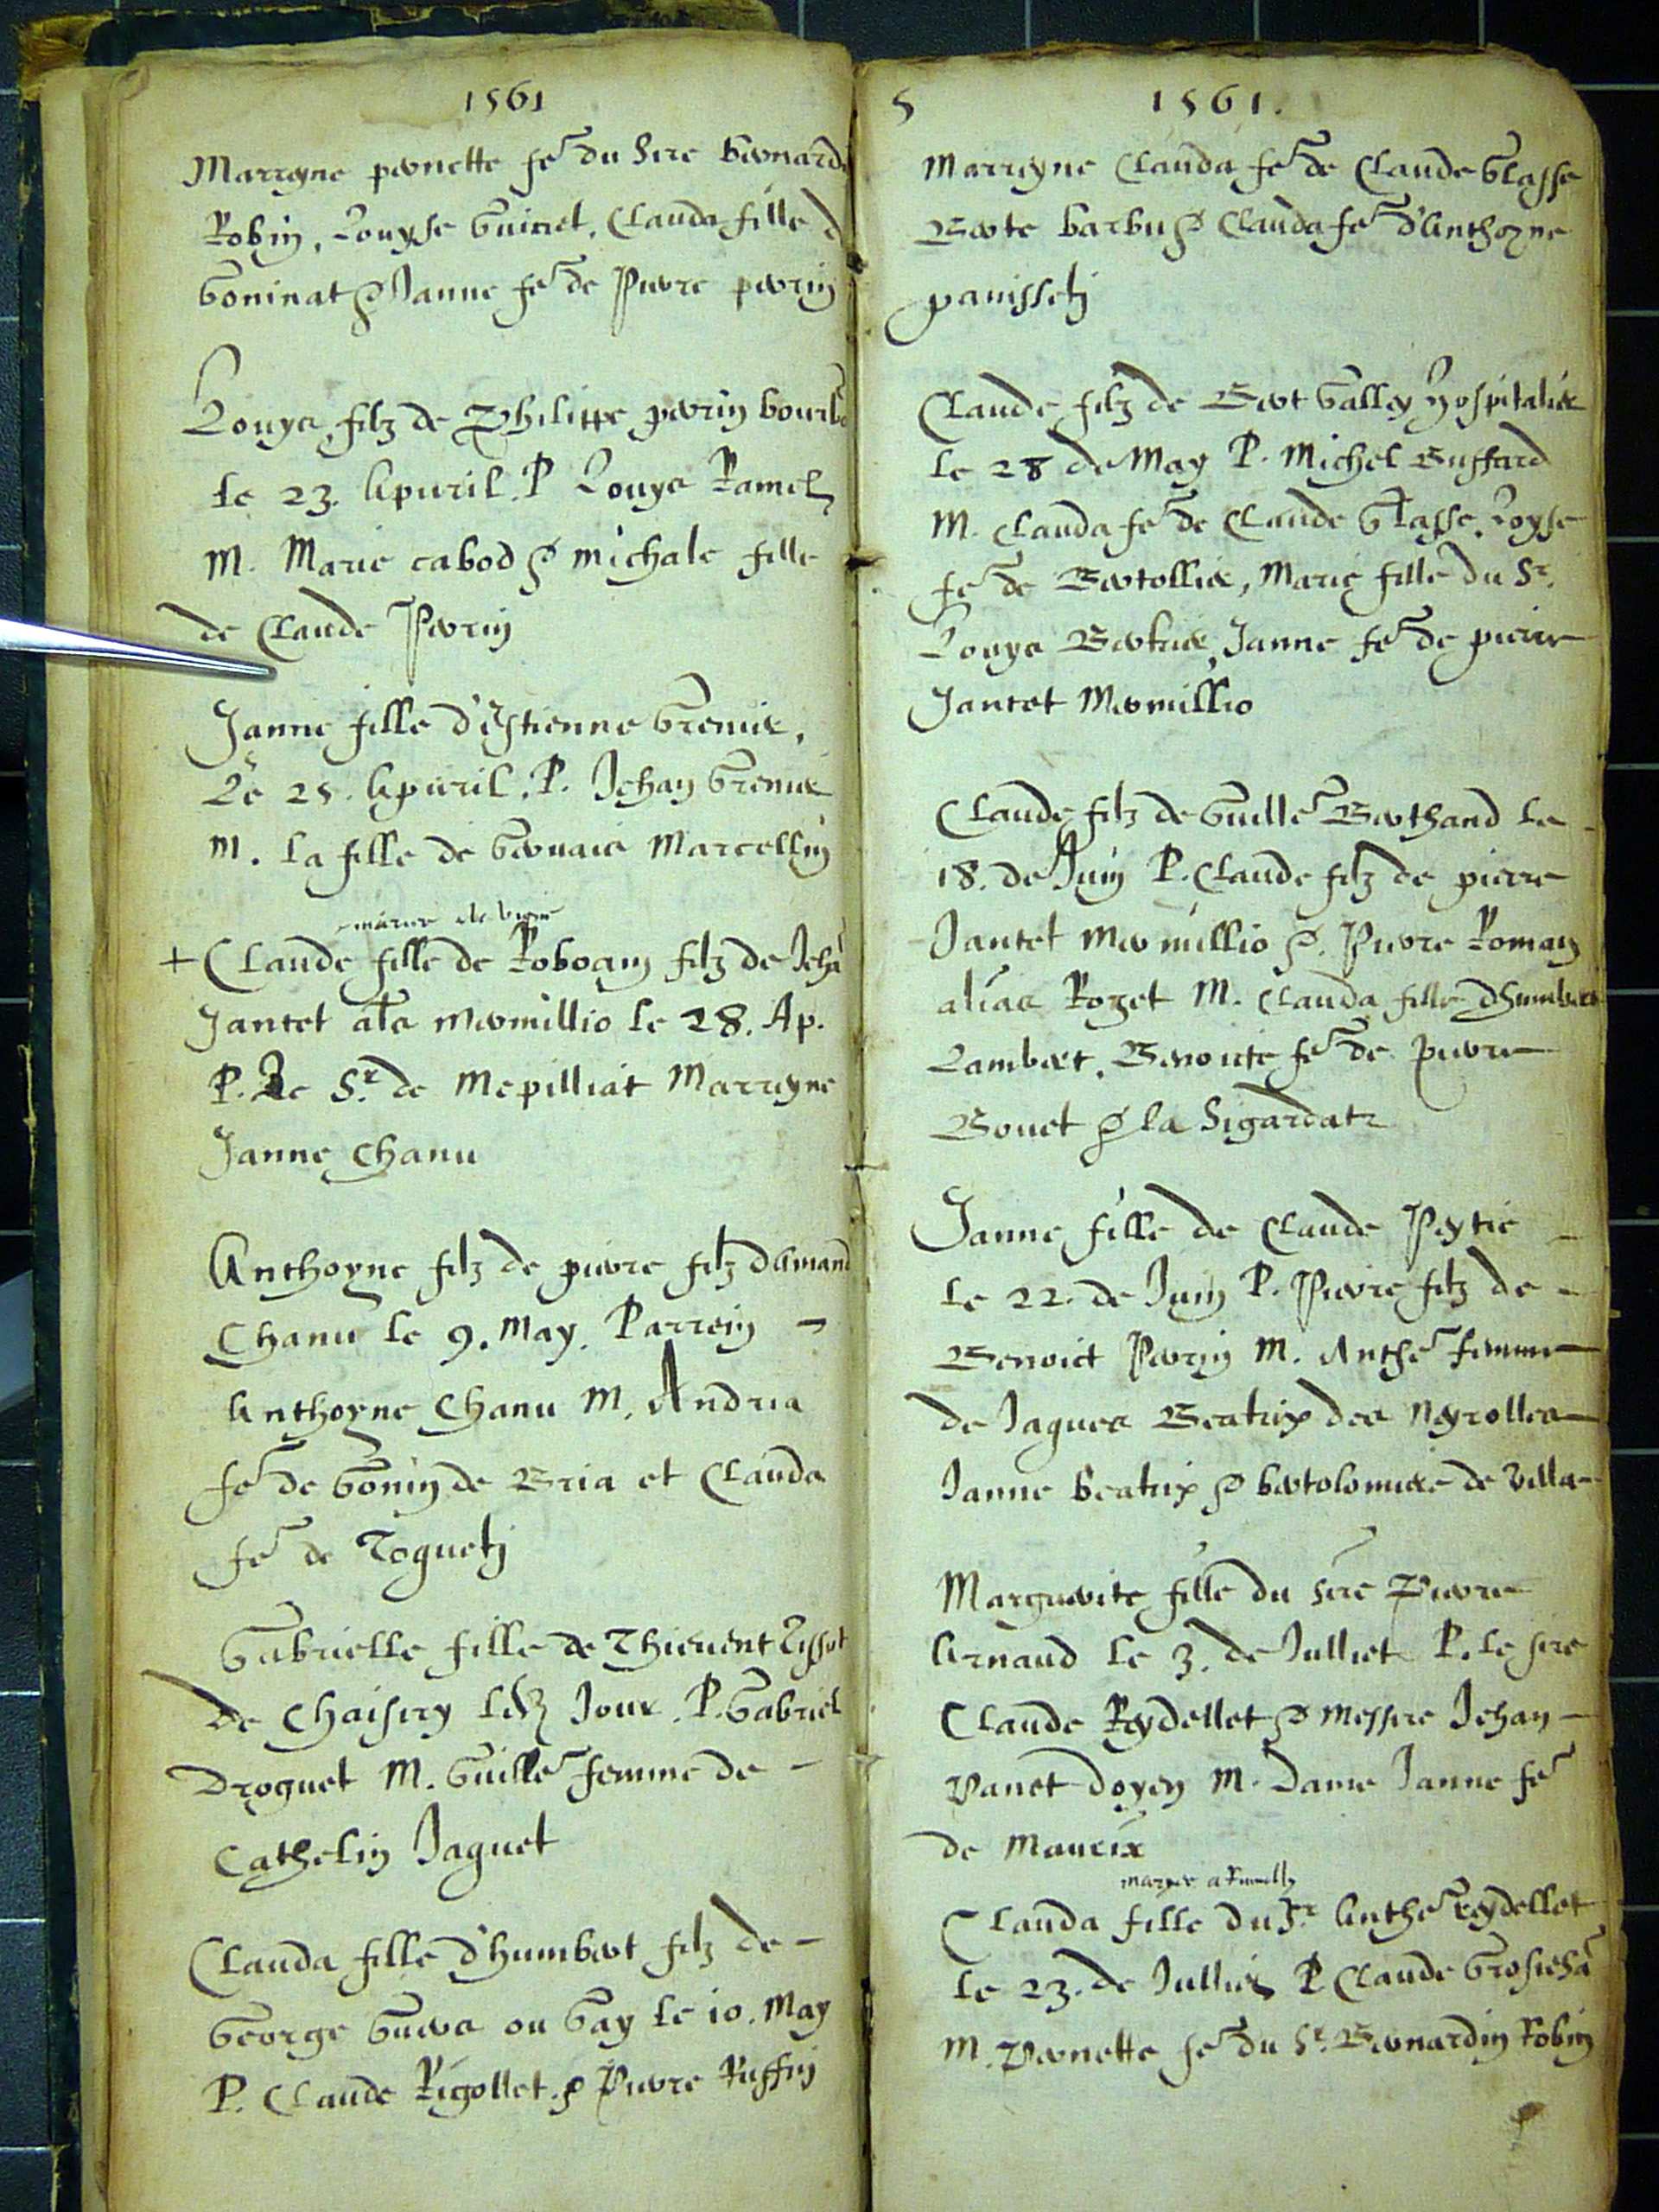 1561
Marreyne pernette fe~ du Sire bernardi
Robin, Louyse Guinet, Clauda fille d
Goninat & Janne fe~ de Pierre perrin
Louys filz de Philippe perrin
le 23. Apuril. P Louys Ramel
M. Marie cabod & michale fille
de Claude Perrin
Janne fille d'estienne Grenier,
Le 25. Apuril. P. Jehan Grenier
M. la fille de Geruais Marcellin
+ Claude fille de Roboam filz de Jehã
Jantet als mermillio le 28. Ap.
P. Le Sr. de Mepilliat Marreyne
Janne Chanu
Anthoyne filz de pierre filz damand
Chanu le 9. May. Parrein
Anthoyne Chanu M. Andria
fe~ de Gonin de Bria et Clauda
fe~ de Toguetj
Gabrielle fille de Thieuent Tissot
de Chaisiry led Jour. P. Gabriel
Droguet M. Guille~ femme de
Cathelin Jaguet
Clauda fille d'humbert filz de
George Guers ou Gay le 10. May
P. Claude Rigollet. & Pierre Ruffin
5 1561.
Marreyne Clauda fe~ de Claude Glasse
Berte barbu & Clauda fe~ d'Anthoyne
panissetj
Claude filz de Bert Galley hospitalier
le 28 de May P. Michel Buffard
M. Clauda fe~ de Claude Glasse, Loyse
fe~ de Bertollier, Marie fille du Sr.
Louys Bertrier, Janne fe~ de pierre
Jantet Mermillio
Claude filz de Guille~ Berthand le
18. de Juin P. Claude filz de pierre
Jantet mermillio &. Pierre Roman
alias Rozet M. Clauda fille dhumbert
Lambert, Benoite fe~ de pierre
Bouet & la Sigardatz
Janne fille de Claude Peytie
le 22. de Juin P. Pierre filz de
Benoict Perrin M. Anthe~ femme
de Jaques Beatrix des Neyrolles
Janne beatrix & bertolomiere de Villa
Marguerite fille du sire Pierre
Arnaud le 3. de Julliet P. le sire
Claude Reydellet & messire Jehan
Vanet doyen M. Dame Janne fe~
de Maurix
mariee a Rumilly
Clauda fille du Sr. Anthe~ reydellet
le 23. de Jullies P Claude Grosjehã
M. Pernette fe~ du Sr. Bernardin Robin